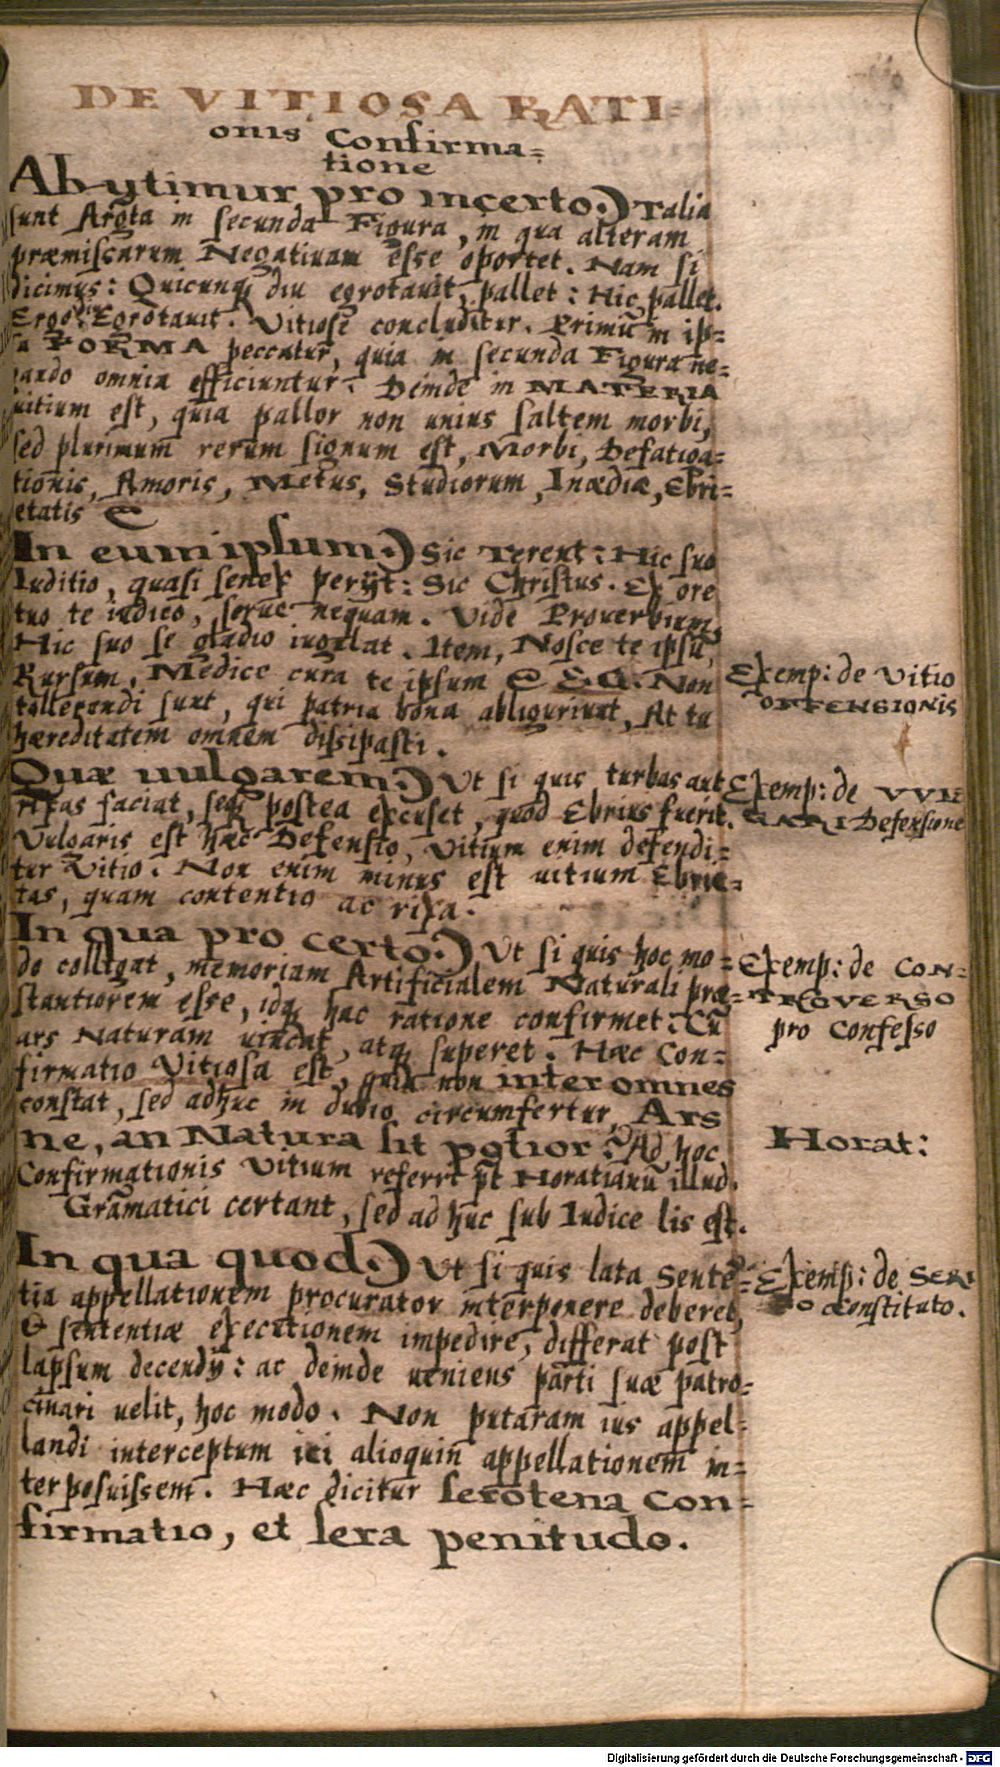 DE VITIOSA RATI-
onis Confirma-
tione
Ab ytimur pro incerto.) Talia
sunt Argta in secunda Figura, in qua alteram
præmissarum Negatiuam esse oportet. Nam si
dicimus: Quicunq diu egrotauit, pallet: Hic pallet.
Ergo Egrotauit. Vitiose concluditur. Primũ in ip-
a FORMA peccatur, quia in secunda Figura ne-
gando omnia efficiuntur. Deinde in MATERIA
uitium est, quia pallor non unius saltem morbi,
sed plurimum rerum signum est, Morbi, Defatiga-
tionis, Amoris, Metus, Studiorum, Inædiæ, Ebri-
etatis &
In eum ipsum.) Sic Terent: Hic suo
Iuditio, quasi senex perijt: Sic Christus. Ex ore
tuo te iudico, serue nequam. Vide Prouerbium,
Hic suo se gladio iugulat. Item, Nosce te ipsũ,
Rursum, Medice cura te ipsum & EG. Non
tollerandi sunt, qui patria bona abliguriunt, At tu
hæreditatem omnem dissipasti.
Exemp: de Vitio
OFFENSIONIS
Quæ uulgarem.) Vt si quis turbas aut
rixas faciat, seq postea excuset, quod Ebrius fuerit.
Vulgaris est hæc Defensio, Vitium enim defendi-
tur Vitio. Non enim minus est uitium Ebrie-
tas, quam contentio ac rixa.
Exemp: de VVL
GARI Defensione
In qua pro certo.) Vt si quis hoc mo-
do colligat, memoriam Artificialem Naturali præ-
stantiorem esse, idq hac ratione confirmet: Cũ
ars Naturam uincat, atq superet. Hæc Con-
firmatio Vitiosa est, quia non inter omnes
constat, sed adhuc in dubio circumfertur, Ars
ne, an Natura sit potior? Ad hoc
Confirmationis Vitium referri pt Horatianũ illud.
Gram̃atici certant, sed ad huc sub Iudice lis est.
Exemp: de CON-
TROVERSO
pro Confesso
Horat:
In qua quod.) Vt si quis lata Sentẽ-
tia appellationem procurator interponere deberet,
& sententiæ executionem impedire, differat post
lapsum decendij: ac deinde ueniens parti suæ patro-
cinari uelit, hoc modo. Non putaram ius appel-
landi interceptum iri alioquin appellationem in-
terposuissem. Hæc dicitur serotena Con-
firmatio, et sera penitudo.
Exemp: de SERI
O Constituto.
Digitalisierung gefördert durch die Deutsche Forschungsgemeinschaft - DFG